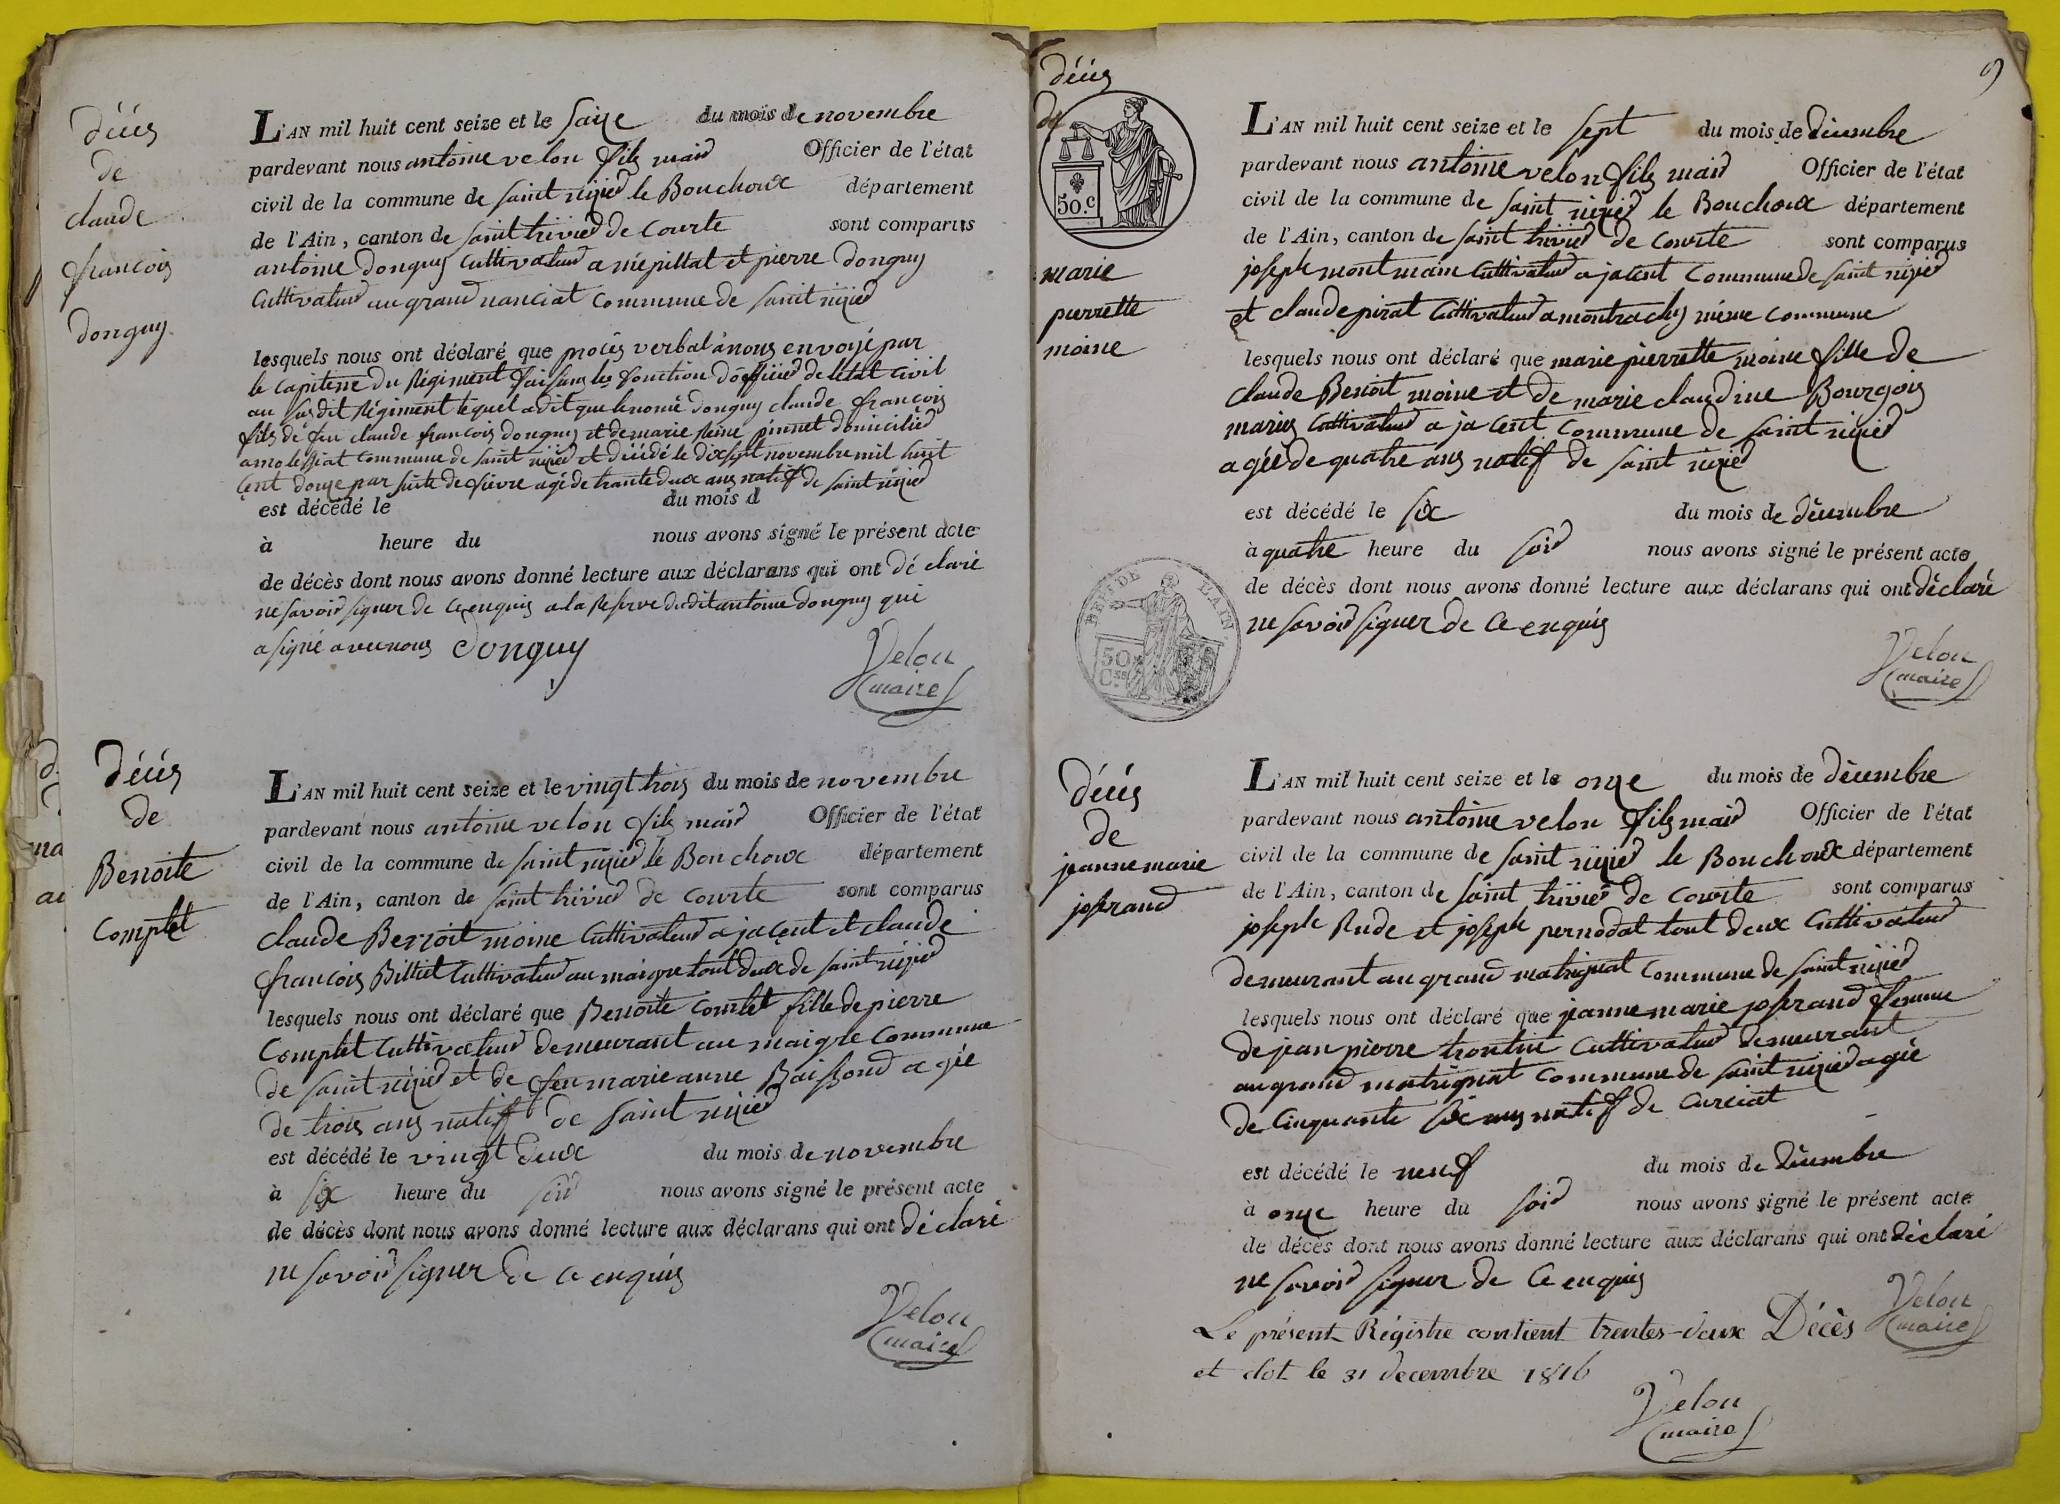 décès
de
claude
francois
donguy
L'AN mil huit cent seize et le saize du mois de novembre
pardevant nous antoine velon fils maire Officier de l'état
civil de la commune de saint nizier le Bouchoux département
de l'Ain, canton de saint trivier de Courte sont comparus
antoine donguy Cultivateur a mépillat et pierre donguy
Cultivateur au grand nanciat Commune de saint nizier
lesquels nous ont déclaré que procès verbal a nous envoyé par
le capitene du Régiment faisans les fonction d'officier de létat civil
au susdit Régiment lequel a dit que le nomé donguy claude francois
fils de feu claude francois donguy et de marie Reine pinnet domicilié
a molessiat Commune de saint nizier et décédé le dixsept novembre mil huit
cent douze par suite de fievre agé de trante deux ans natif de saint nizier
est décédé le du mois d
à heure du nous avons signé le présent acte
de décès dont nous avons donné lecture aux déclarans qui ont déclaré
ne savoir signer de ce enquis a la Reserve dudit antoine donguy qui
a signé avec nous donguy
Velon
maire
décès
de
Benoite
Complet
L'AN mil huit cent seize et le vingt trois du mois de novembre
pardevant nous antoine velon fils maire Officier de l'état
civil de la commune de saint nizier le Bouchoux département
de l'Ain, canton de saint trivier de Courte sont comparus
Claude Benoit moine Cultivateur a jacent et claude
francois Billiet Cultivateur au maigre tout deux de saint nizier
lesquels nous ont déclaré que Benoite Comlet fille de pierre
Complet Cultivateur demeurant au maigre Commune
de saint nizier et de feu marie anne agée
de trois ans natif de saint nizier
est décédé le vingt deux du mois de novembre
à six heure du soir nous avons signé le présent acte
de décès dont nous avons donné lecture aux déclarans qui ont déclaré
ne savoir signer de ce enquis
Velon
maire
9
décès
de
50.c
marie
pierrette
moine
L'AN mil huit cent seize et le sept du mois de décembre
pardevant nous antoine velon fils maire Officier de l'état
civil de la commune de saint nizier le Bouchoux département
de l'Ain, canton de saint trivier de Courte sont comparus
joseph montmain Cultivateur a jacent Commune de saint nizier
et claude pirat Cultivateur a montrachy méme commune
lesquels nous ont déclaré que marie pierrette moine fille de
Claude Benoit moine et de marie claudine Bourgois
mariés Cultivateur a jacent Commune de saint nizier
agée de quatre ans natif de saint nizier
est décédé le six du mois de décembre
à quatre heure du soir nous avons signé le présent acte
de décès dont nous avons donné lecture aux déclarans qui ont déclaré
ne savoir signer de ce enquis
50
Velon
maire
décès
de
jeanne marie
josserand
L'AN mil huit cent seize et le onze du mois de décembre
pardevant nous antoine velon fils maire Officier de l'état
civil de la commune de saint nizier le Bouchoux département
de l'Ain, canton de saint trivier de Courte sont comparus
joseph Rude et joseph pernodat tout deux Cultivateur
demeurant au grand matrignat Commune de saint nizier
lesquels nous ont déclaré que jeanne marie josserand femme
de jean pierre trontin Cultivateur demeurant
au grand matrignat Commune de saint nizier agée
de Cinquante six ans natif de Curciat
est décédé le neuf du mois de décembre
à onze heure du soir nous avons signé le présent acte
de décès dont nous avons donné lecture aux déclarans qui ont déclaré
ne savoir signer de ce enquis
Velon
maire
Le présent Régistre contient trentes-deux Décès
et clot le 31 decembre 1816
Velon
maire